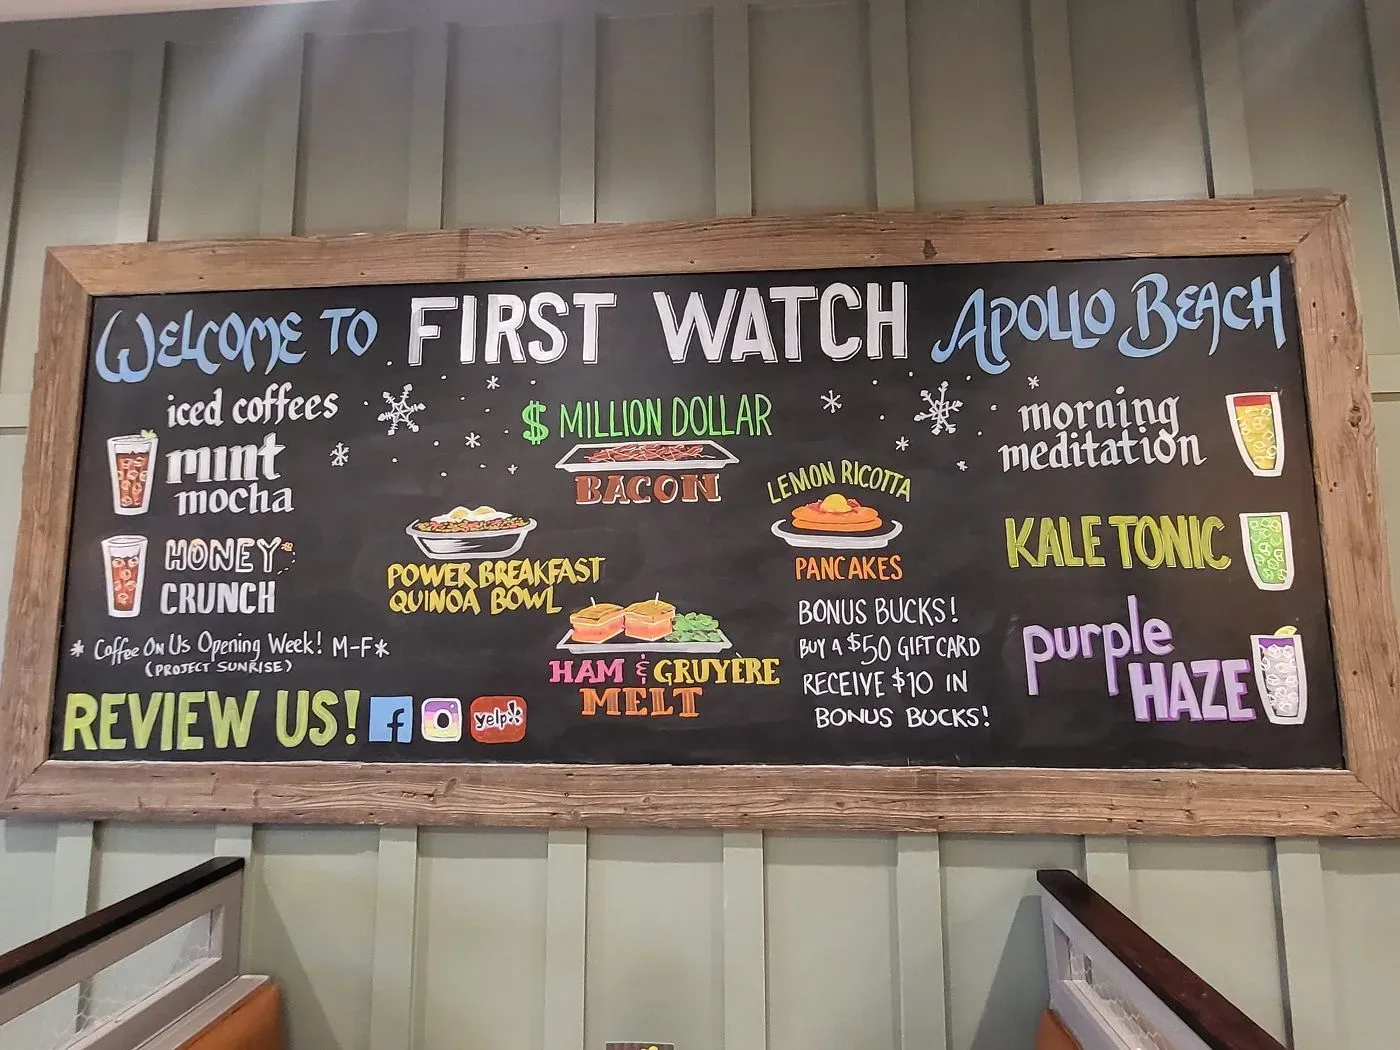 WELCOME TO FIRST WATCH APOLLO BEACH
iced coffees
mint
mocha
HONEY
CRUNCH
* Coffee On Us Opening Week! M-F *
(PROJECT SUNRISE)
REVIEW US! f yelp
$ MILLION DOLLAR
BACON
POWER BREAKFAST
QUINOA BOWL
HAM & GRUYÈRE
MELT
LEMON RICOTTA
PANCAKES
BONUS BUCKS!
BUY A $50 GIFT CARD
RECEIVE $10 IN
BONUS BUCKS!
morning
meditation
KALE TONIC
purple
HAZE